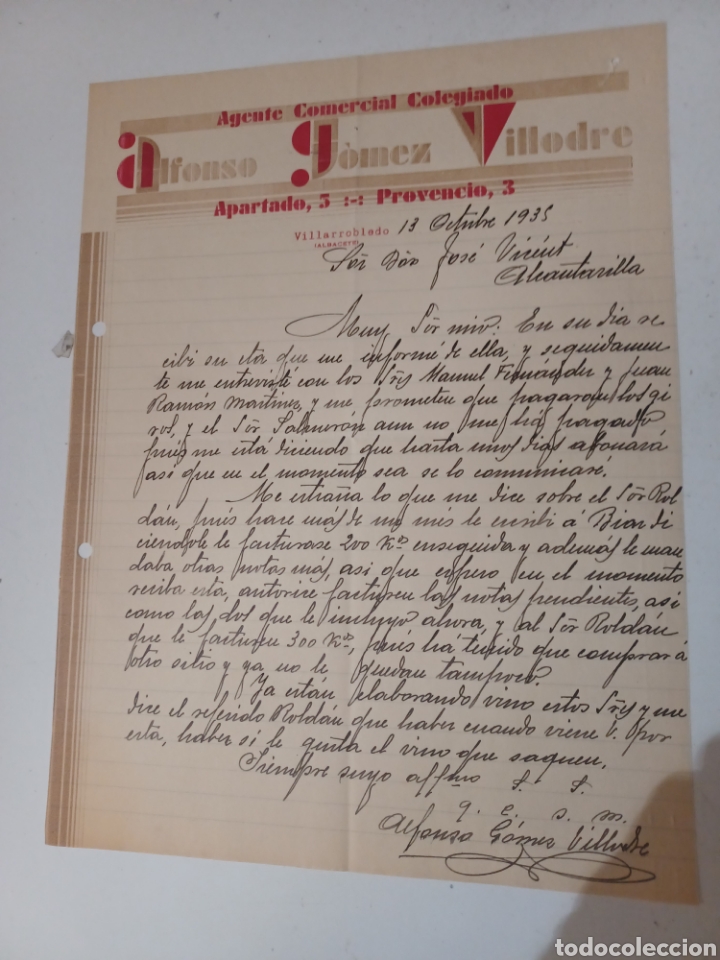 Agente Comercial Colegiado
Alfonso Gòmez Villodre
Apartado, 5 :-: Provencio, 3
Villarrobledo 13 Octubre 1935
(ALBACETE)
Sor Don José Vicént
Alcantarilla
Muy Sor mio: En su dia re
cibi su cta que me informé de ella, y seguidamen
te me entrevisté con los Sres Manuel Fernander y Juan
Ramón Martinez, y me prometieu que pagaron los gi
ros, y el Sor Salmerón aun no me há pagado
pués me está diciendo que harta unos dias abonará
asi que en el momento sea se lo comunicare.
Me estraña lo que me dice sobre el Sor Rol
dán, pués hace más de un més le escribi á Biar di
ciendole le facturase 200 Kos enseguida y además le man
daba otras notas más, asi que espero en el momento
reciba esta, autorice facturen las notas pendientes, asi
como las dos que le incluyo ahora, y al Sor Roldán
que le facturen 300 Kos, pués há tenido que comprar á
otro sitio y ya no le quedan tampoco.
Ya están elaborando vino estos Sres y me
dice el referido Roldán que haber cuando viene V. por
esta, haber si le gusta el vino que saquen.
Siempre suyo affmo S. S.
q. e. s. m.
Alfonso Gómez Villodre
todocoleccion.net